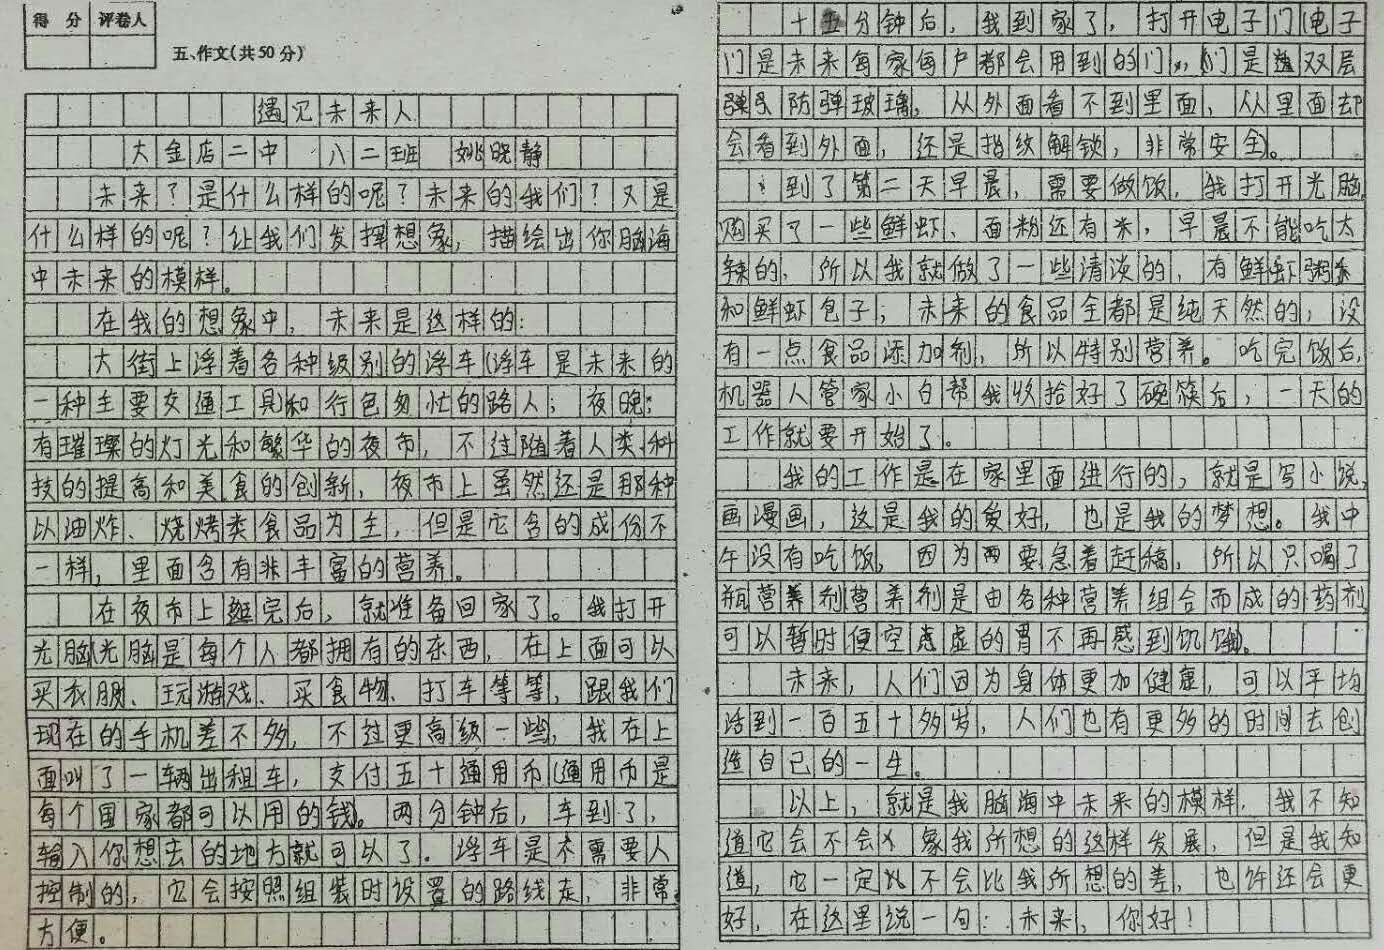 得 分 评卷人
五、作文(共50分)
遇见未来人
大金店二中 八二班 姚晓静
未来？是什么样的呢？未来的我们？又是
什么样的呢？让我们发挥想象，描绘出你脑海
中未来的模样。
在我的想象中，未来是这样的：
大街上浮着各种级别的浮车(浮车是未来的
一种主要交通工具)和行色匆忙的路人；夜晚；
有璀璨的灯光和繁华的夜市，不过随着人类科
技的提高和美食的创新，夜市上虽然还是那种
以油炸、烧烤类食品为主，但是它含的成份不
一样，里面含有非丰富的营养。
在夜市上逛完后，就准备回家了。我打开
光脑(光脑是每个人都拥有的东西，在上面可以
买衣服、玩游戏、买食物、打车等等，跟我们
现在的手机差不多，不过更高级一些，我在上
面叫了一辆出租车，支付五十通用币(通用币是
每个国家都可以用的钱)。两分钟后，车到了，
输入你想去的地方就可以了。浮车是不需要人
控制的，它会按照组装时设置的路线走，非常
方便。
十五分钟后，我到家了，打开电子门(电子
门是未来每家每户都会用到的门，门是双层
弹防弹玻璃，从外面看不到里面，从里面却
会看到外面，还是指纹解锁，非常安全)。
到了第二天早晨，需要做饭，我打开光脑，
购买了一些鲜虾、面粉还有米，早晨不能吃太
辣的，所以我就做了一些清淡的，有鲜虾粥
和鲜虾包子；未来的食品全都是纯天然的，没
有一点食品添加剂，所以特别营养。吃完饭后，
机器人管家小白帮我收拾好了碗筷后，一天的
工作就要开始了。
我的工作是在家里面进行的，就是写小说，
画漫画，这是我的爱好，也是我的梦想。我中
午没有吃饭，因为要急着赶稿，所以只喝了
瓶营养剂(营养剂是由各种营养组合而成的药剂，
可以暂时使空虚的胃不再感到饥饿)。
未来，人们因为身体更加健康，可以平均
活到一百五十多岁，人们也有更多的时间去创
造自己的一生。
以上，就是我脑海中未来的模样，我不知
道它会不会象我所想的这样发展，但是我知
道，它一定不会比我所想的差，也许还会更
好，在这里说一句：未来，你好！